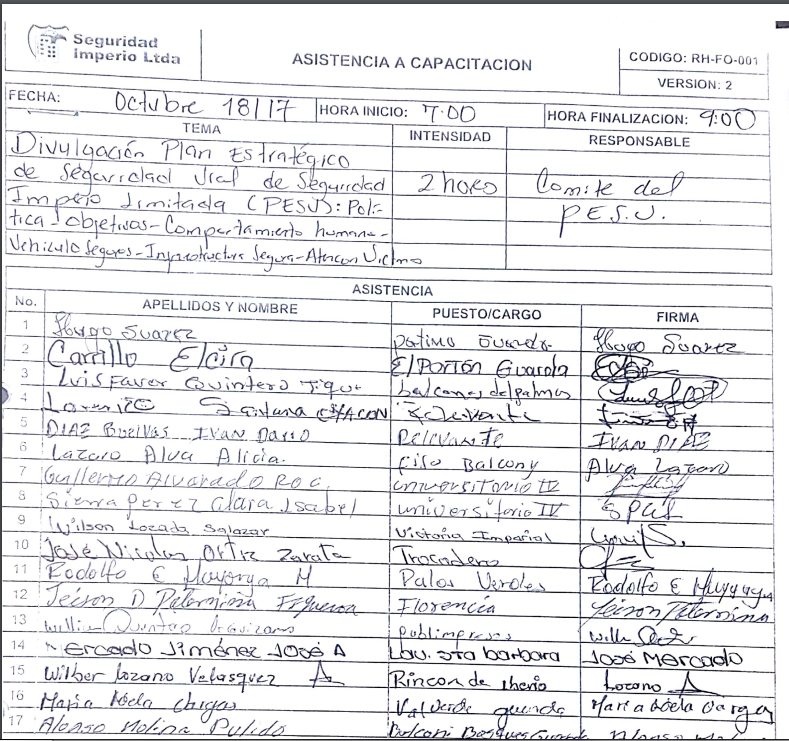 Seguridad
Imperio Ltda
ASISTENCIA A CAPACITACION
CODIGO: RH-FO-001
VERSION: 2
FECHA: Octubre 18/17 HORA INICIO: 7:00 HORA FINALIZACION: 9:00
TEMA INTENSIDAD RESPONSABLE
Divulgación Plan Estratégico
de Seguridad Vial de Seguridad 2 horas Comite del
Imperio Limitada (PESV): Poli- P.E.S.V.
tica - objetivos - Comportamiento humano -
Vehiculo Seguros - Infraestructura Segura - Atencion Victimas
ASISTENCIA
No. APELLIDOS Y NOMBRE PUESTO/CARGO FIRMA
1 Hugo Suarez Hugo Suarez
2 Carrillo Elcira El Portón Guarda
3 Luis Quintero balcones del palmas
4 Santana
5 DIAZ Buelvas Ivan Dario Relevante IVAN DIAZ
6 Lazaro Alva Alicia. Balcony Alva Lazaro
7 Guillermo Alvarado Roc. universitario IV
8 Sierra Perez Clara Isabel universitario IV
9 Wilson Lozada Salazar Victoria Imperial
10 José Nicolas Ortiz Zarate Trocadero
11 Rodolfo E Mayorga M Palos Verdes Rodolfo E Mayorga
12 Jeison D Paternina Figueroa Florencia Jeison Paternina
13 Publimpresos
14 Mercado Jiménez José A Lav. sta barbara José Mercado
15 Wilber Lozano Velasquez Rincon de Iberia Lozano
16 Maria Noela Vargas Valverde guarda Maria Noela Vargas
17 Alonso Molina Pulido Balcon Bosques Guarda Alonso